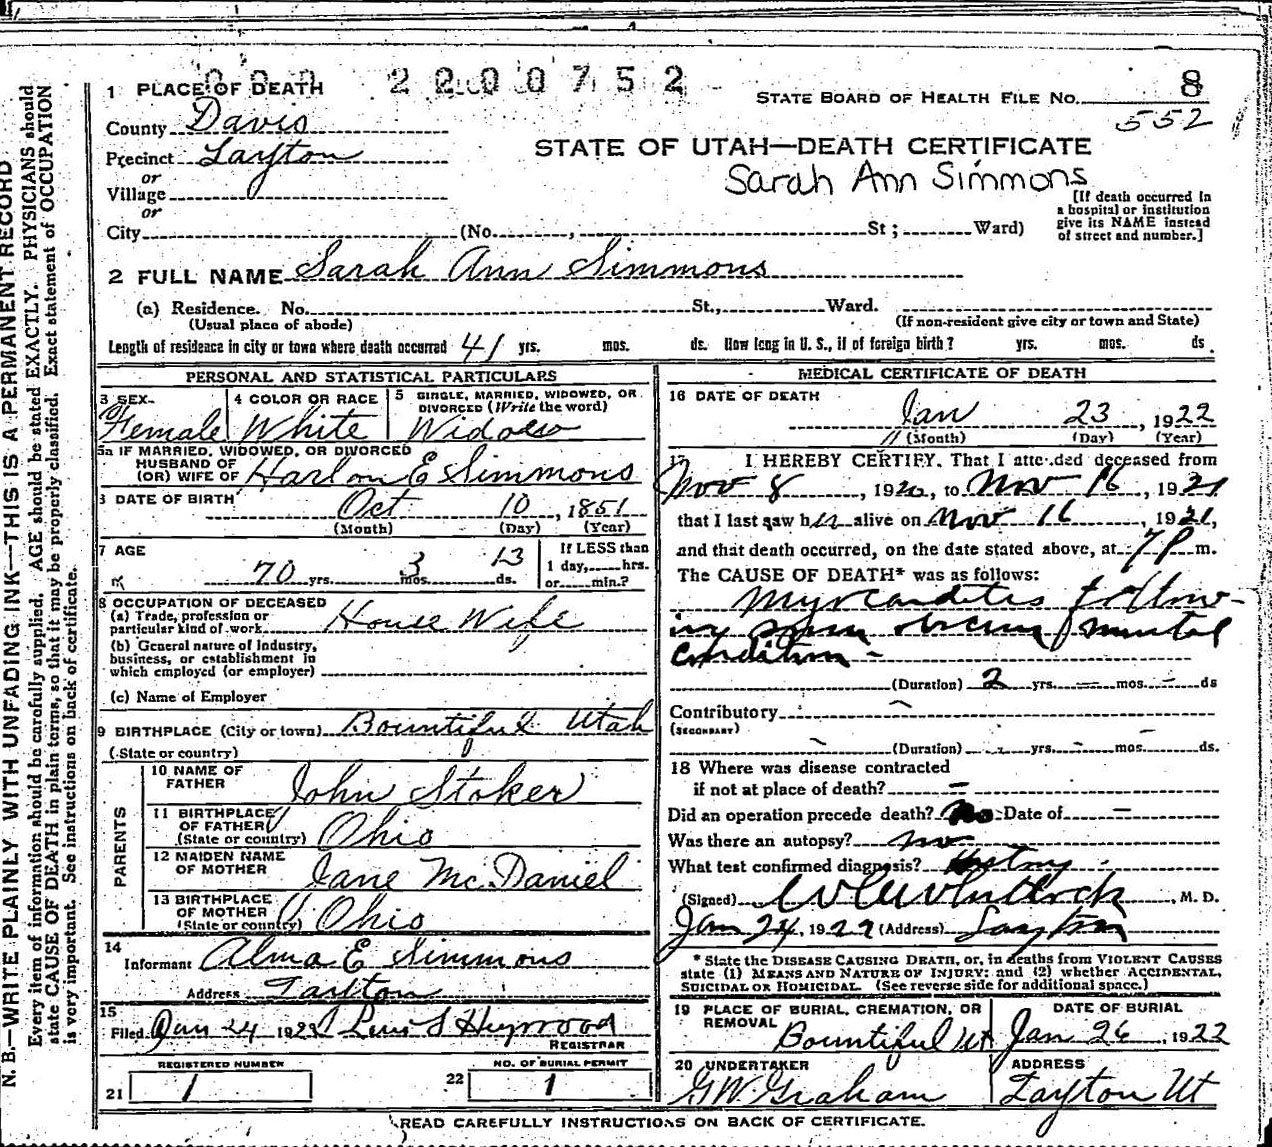 N. B.—WRITE PLAINLY WITH UNFADING INK—THIS IS A PERMANENT RECORD
Every item of information should be carefully supplied. AGE should be stated EXACTLY. PHYSICIANS should
state CAUSE OF DEATH in plain terms, so that it may be properly classified. Exact statement of OCCUPATION
is very important. See instructions on back of certificate.
2200752
1 PLACE OF DEATH
STATE BOARD OF HEALTH FILE NO. 8
552
County Davis
Precinct Layton
STATE OF UTAH—DEATH CERTIFICATE
Sarah Ann Simmons
or
Village
or
City (No. , St ; Ward)
[If death occurred in
a hospital or institution
give its NAME instead
of street and number.]
2 FULL NAME Sarah Ann Simmons
(a) Residence. No. St., Ward.
(Usual place of abode) (If non-resident give city or town and State)
Length of residence in city or town where death occurred 41 yrs. mos. ds. How long in U. S., if of foreign birth? yrs. mos. ds.
PERSONAL AND STATISTICAL PARTICULARS
3 SEX
Female
4 COLOR OR RACE
White
5 SINGLE, MARRIED, WIDOWED, OR
DIVORCED (Write the word)
Widow
5a IF MARRIED, WIDOWED, OR DIVORCED
HUSBAND OF
(OR) WIFE OF Harlon E Simmons
6 DATE OF BIRTH
Oct 10, 1851
(Month) (Day) (Year)
7 AGE
70 yrs. 3 mos. 13 ds.
If LESS than
1 day, hrs.
or min.?
8 OCCUPATION OF DECEASED
(a) Trade, profession or
particular kind of work House Wife
(b) General nature of Industry,
business, or establishment in
which employed (or employer)
(c) Name of Employer
9 BIRTHPLACE (City or town) Bountiful Utah
(State or country)
PARENTS
10 NAME OF
FATHER John Stoker
11 BIRTHPLACE
OF FATHER
(State or country) Ohio
12 MAIDEN NAME
OF MOTHER Jane McDaniel
13 BIRTHPLACE
OF MOTHER
(State or country) Ohio
14
Informant Alma E Simmons
Address Layton
15
Filed Jan 24 1922 S Heywood
REGISTRAR
REGISTERED NUMBER
21 1
NO. OF BURIAL PERMIT
22 1
MEDICAL CERTIFICATE OF DEATH
16 DATE OF DEATH
Jan 23, 1922
(Month) (Day) (Year)
17 I HEREBY CERTIFY, That I attended deceased from
Nov 8, 192, to Nov 16, 1921
that I last saw her alive on Nov 16, 1921,
and that death occurred, on the date stated above, at 7 P m.
The CAUSE OF DEATH* was as follows:
Myocarditis follow-
ing mental
condition -
(Duration) 2 yrs. — mos. — ds
Contributory
(SECONDARY)
(Duration) yrs. mos. ds.
18 Where was disease contracted
if not at place of death? —
Did an operation precede death? No Date of —
Was there an autopsy? no
What test confirmed diagnosis? History
(Signed) Whitlock, M. D.
Jan 24, 1922 (Address) Layton
* State the DISEASE CAUSING DEATH, or, in deaths from VIOLENT CAUSES
state (1) MEANS AND NATURE OF INJURY; and (2) whether ACCIDENTAL,
SUICIDAL OR HOMICIDAL. (See reverse side for additional space.)
19 PLACE OF BURIAL, CREMATION, OR
REMOVAL
Bountiful Ut
DATE OF BURIAL
Jan 26, 1922
20 UNDERTAKER
G W Graham
ADDRESS
Layton Ut
READ CAREFULLY INSTRUCTIONS ON BACK OF CERTIFICATE.